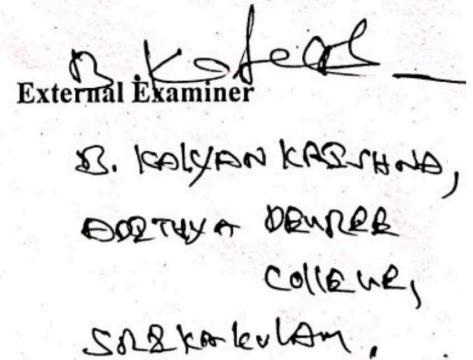 External Examiner
B. KALYAN KRISHNA,
ADITHYA DEGREE
COLLEGE,
SRIKAKULAM.